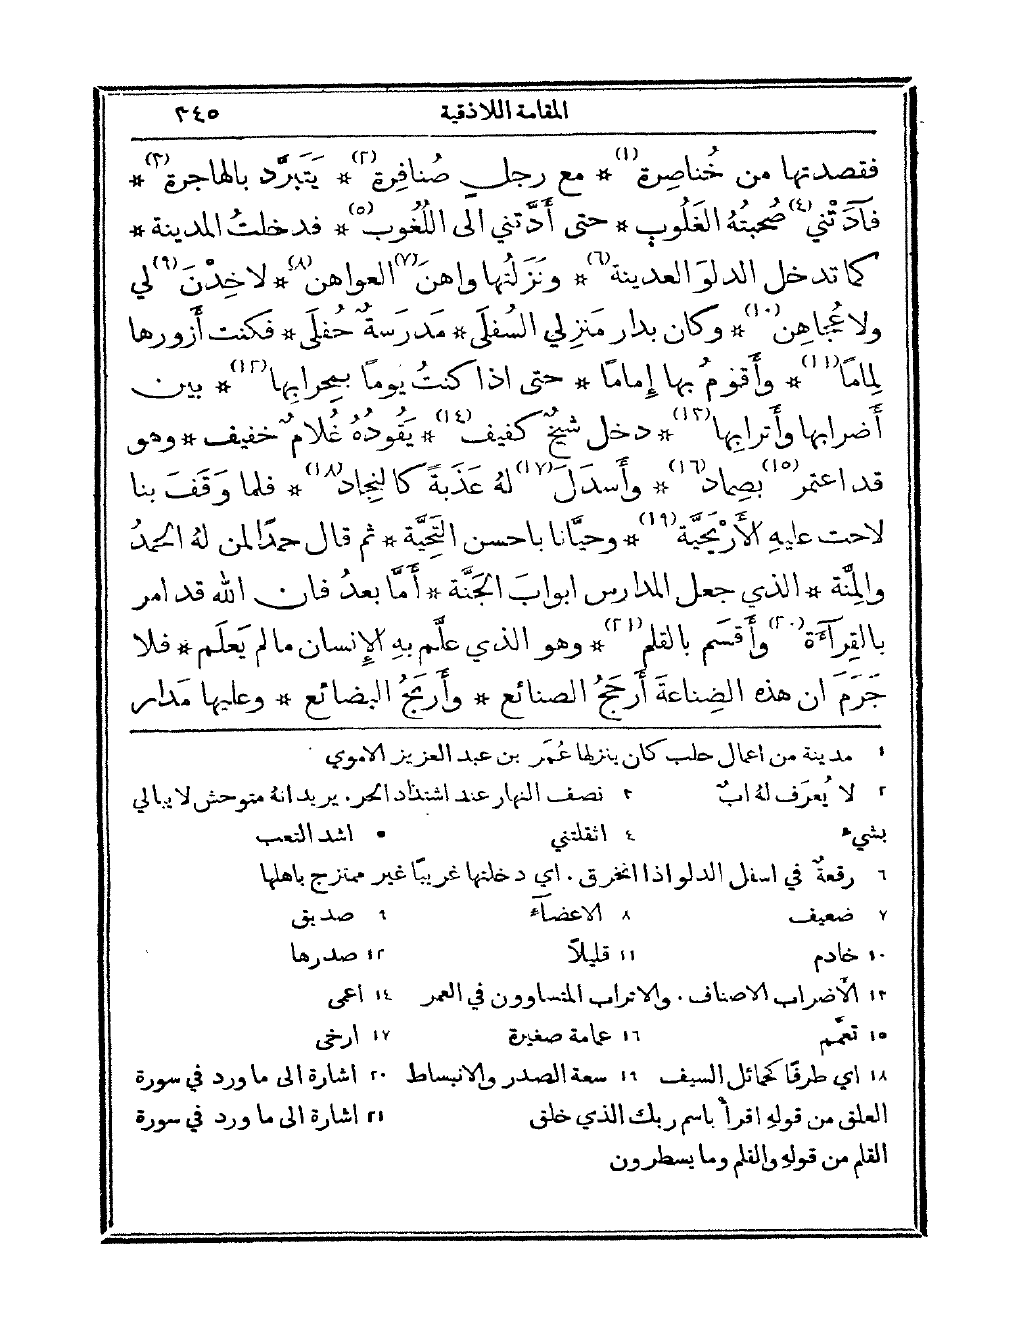 المقامة اللاذقية ٣٤٥
فقصدتها من خُناصِرة(١) * مع رجلٍ صُنافِرة(٢) * يَتَبرَّد بالهاجرة(٣) *
فآدَتْني(٤) صُحبتهُ الغَلُوب * حتى أَدَّتني الى اللُغُوب(٥) * فدخلتُ المدينة *
كما تدخل الدلوَ العدينة(٦) * ونَزَلتُها واهنَ(٧) العواهن(٨) * لا خِدْنَ(٩) لي
ولا عُجاهِن(١٠) * وكان بدار مَنزِلي السُفلَى * مَدرَسةٌ حُفلَى * فكنت أَزورها
لِماماً(١١) * وأَقومُ بها إِماماً * حتى اذا كنتُ يوماً بمِحرابِها(١٢) * بين
أَضرابها وأَترابِها(١٣) * دخل شيخٌ كفيف(١٤) * يَقُودُهُ غُلامٌ خفيف * وهو
قد اعتمر(١٥) بصِماد(١٦) * وأَسدَلَ(١٧) لهُ عَذَبةً كالنِجاد(١٨) * فلما وَقَفَ بنا
لاحت عليهِ الأَرْيَحيَّة(١٩) * وحيَّانا باحسن التَحِيَّة * ثم قال حمدًا لمن له الحمدُ
والمِنَّة * الذي جعل المدارس ابوابَ الجَنَّة * أَمَّا بعدُ فان الله قد امر
بالقِرآءَة(٢٠) وأَقسَم بالقلم(٢١) * وهو الذي علَّم بهِ الإِنسان ما لم يَعلَم * فلا
جَرَمَ ان هذه الصِناعةَ أَرجَحُ الصنائع * وأَربَحُ البضائع * وعليها مَدار
١ مدينة من اعمال حلب كان ينزلها عُمَر بن عبد العزيز الاموي
٢ لا يُعرَف لهُ ابٌ ٣ نصف النهار عند اشتداد الحر. يريد انهُ متوحش لا يبالي
بشيء ٤ اثقلتني ٥ اشد التعب
٦ رقعةٌ في اسفل الدلو اذا انخرق. اي دخلتها غريبًا غير ممتزج باهلها
٧ ضعيف ٨ الاعضآء ٩ صديق
١٠ خادم ١١ قليلاً ١٢ صدرها
١٣ الأضراب الاصناف. والاتراب المتساوون في العمر ١٤ اعمى
١٥ تعمَّم ١٦ عمامة صغيرة ١٧ ارخى
١٨ اي طرفًا كحمائل السيف ١٩ سعة الصدر والانبساط ٢٠ اشارة الى ما ورد في سورة
العلق من قولهِ اقرأ باسم ربك الذي خلق ٢١ اشارة الى ما ورد في سورة
القلم من قولهِ والقلم وما يسطرون